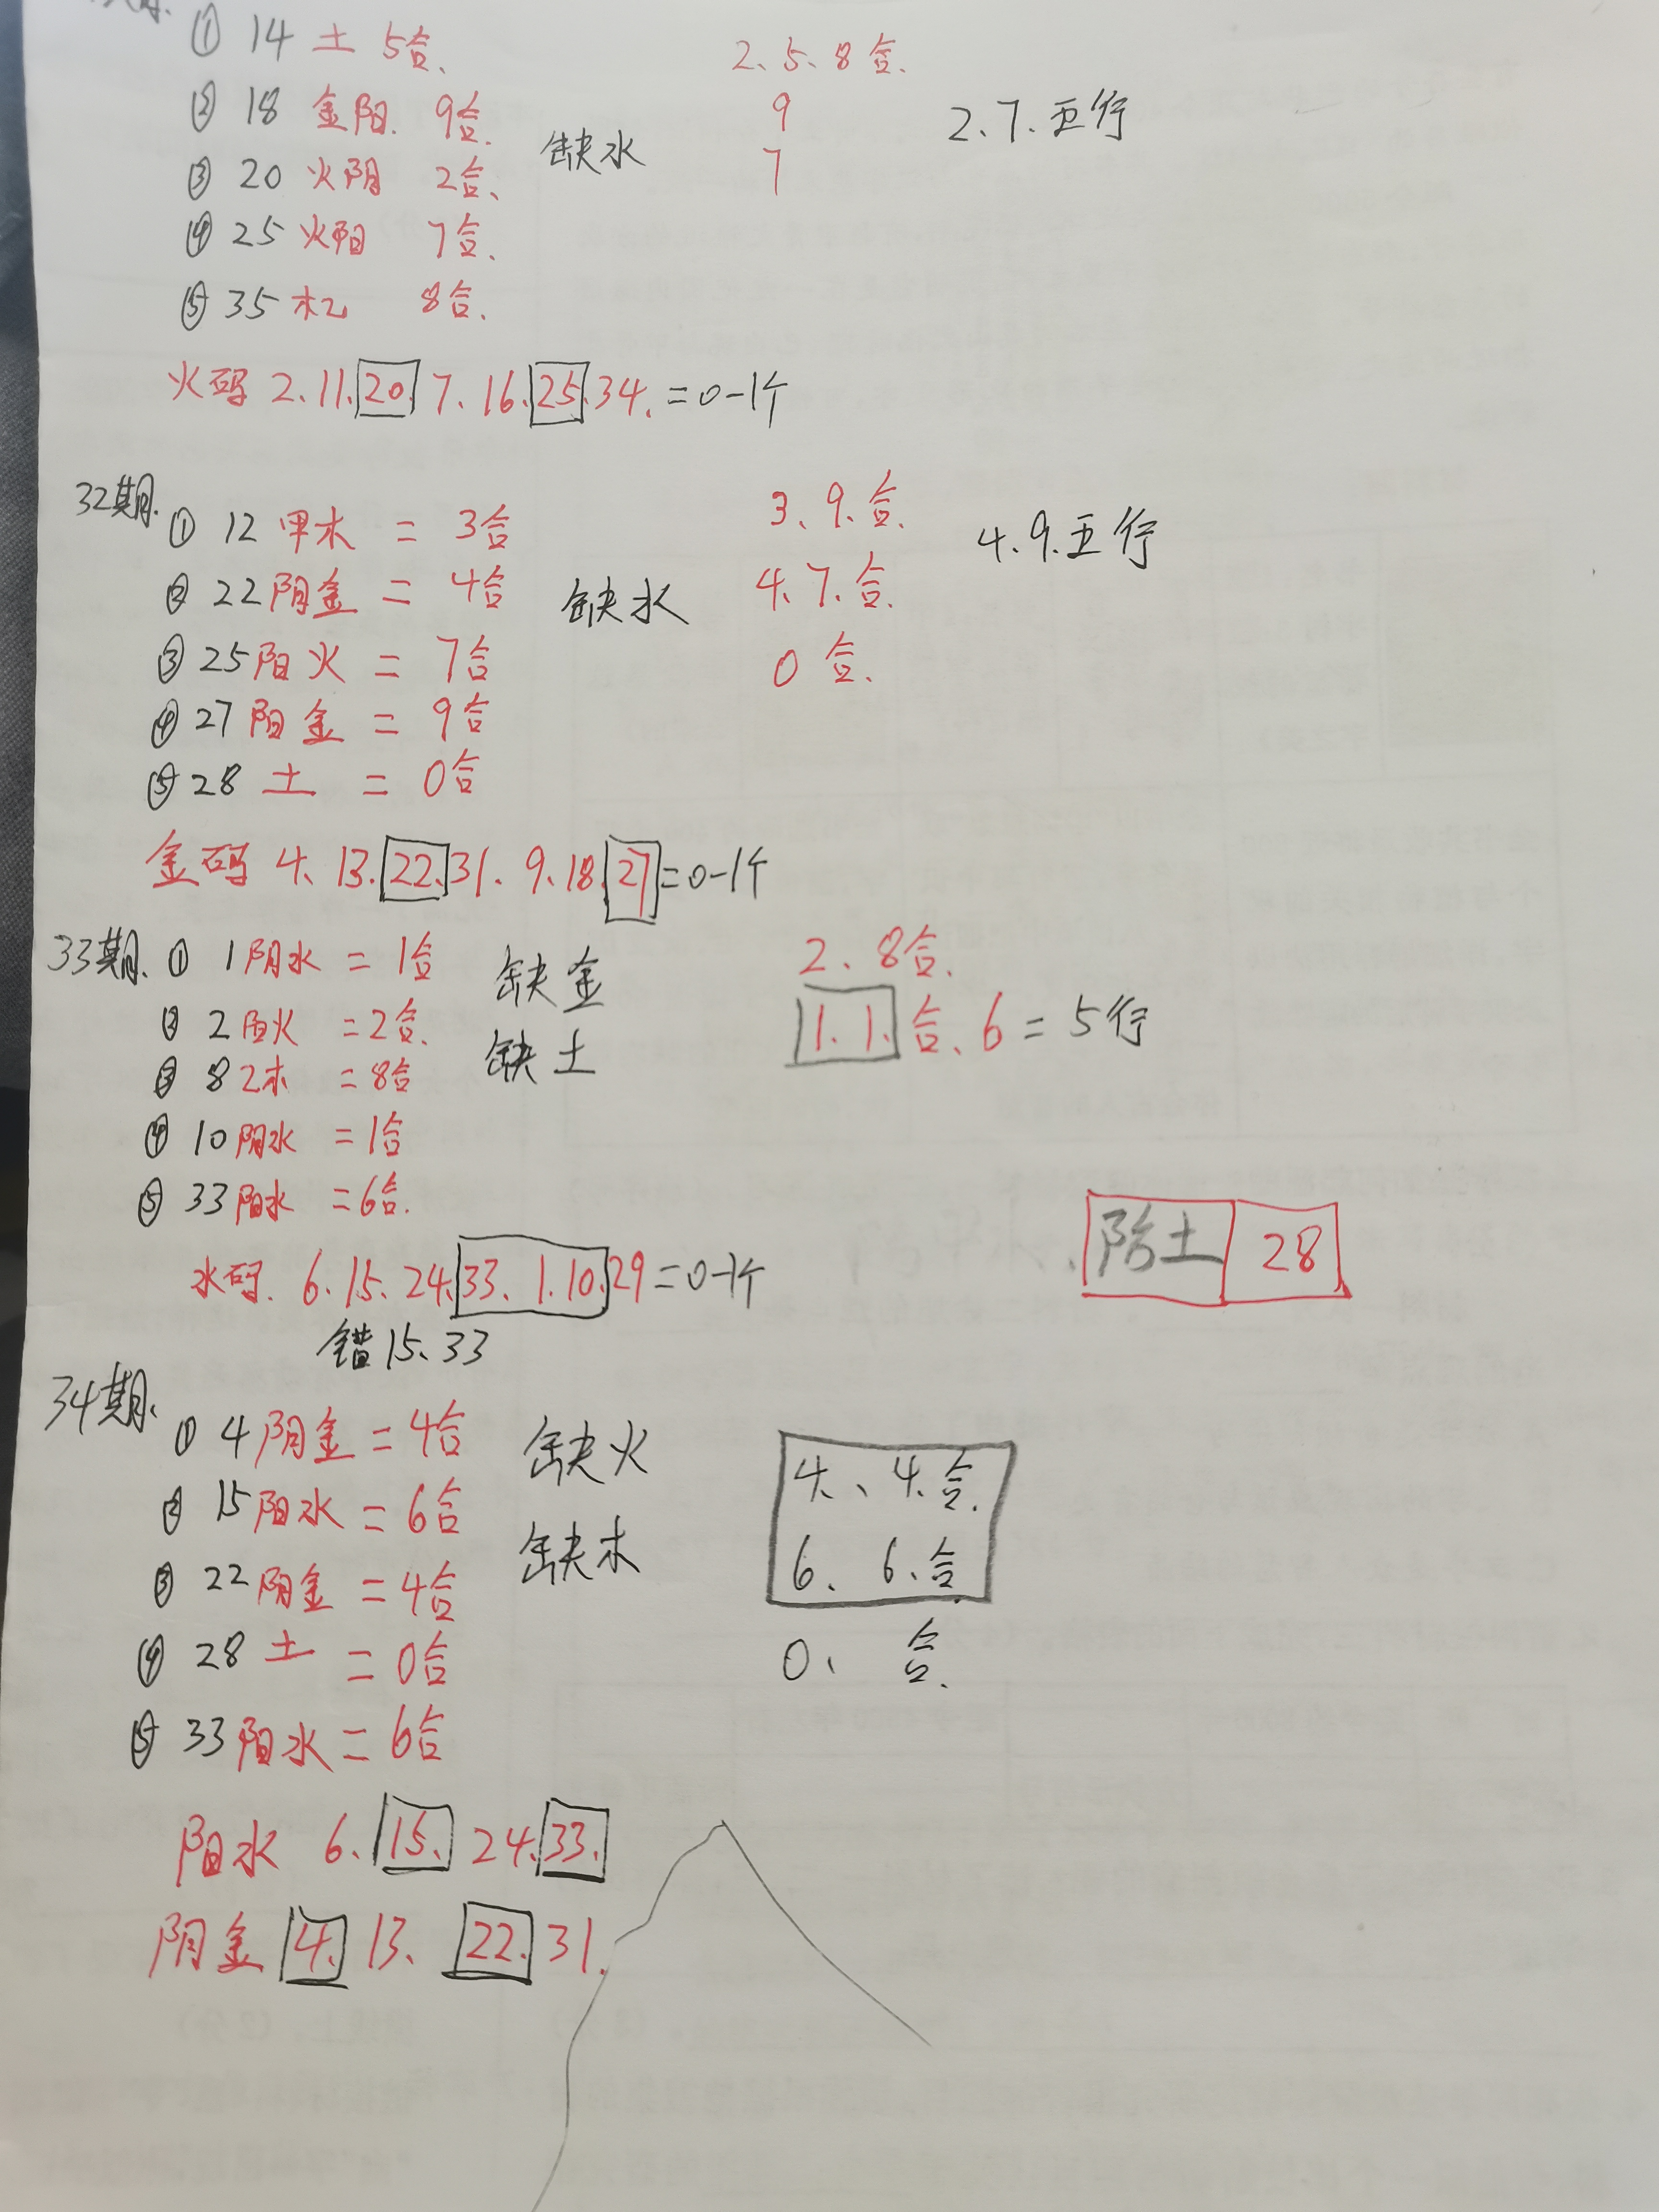 ① 14 土 5合、
② 18 金阳. 9合.
③ 20 火阴 2合、
④ 25 火阳 7合、
⑤ 35 木乙 8合.
缺水
2、5、8合.
9
7
2.7.五行
火码 2.11.20.7.16.25.34.=0-1个
32期.
① 12 甲木 = 3合
② 22 阴金 = 4合
③ 25 阳火 = 7合
④ 27 阳金 = 9合
⑤ 28 土 = 0合
缺水
3、9.合.
4.7.合.
0 合.
4.9.五行
金码 4、13.22.31.9.18.27=0-1个
33期、
① 1 阴水 = 1合
② 2 阴火 =2合.
③ 8 乙木 =8合
④ 10 阴水 =1合
⑤ 33 阳水 =6合.
缺金
缺土
2、8合.
1.1.合、6 = 5行
水码. 6.15.24.33.1.10.29=0-1个
错15、33
28
34期、
① 4 阴金=4合
② 15 阳水=6合
③ 22 阴金=4合
④ 28 土 =0合
⑤ 33 阳水=6合
缺火
缺木
4、、4.合.
6、6.合.
0、 合.
阳水 6、15. 24.33.
阴金 4. 13. 22. 31.